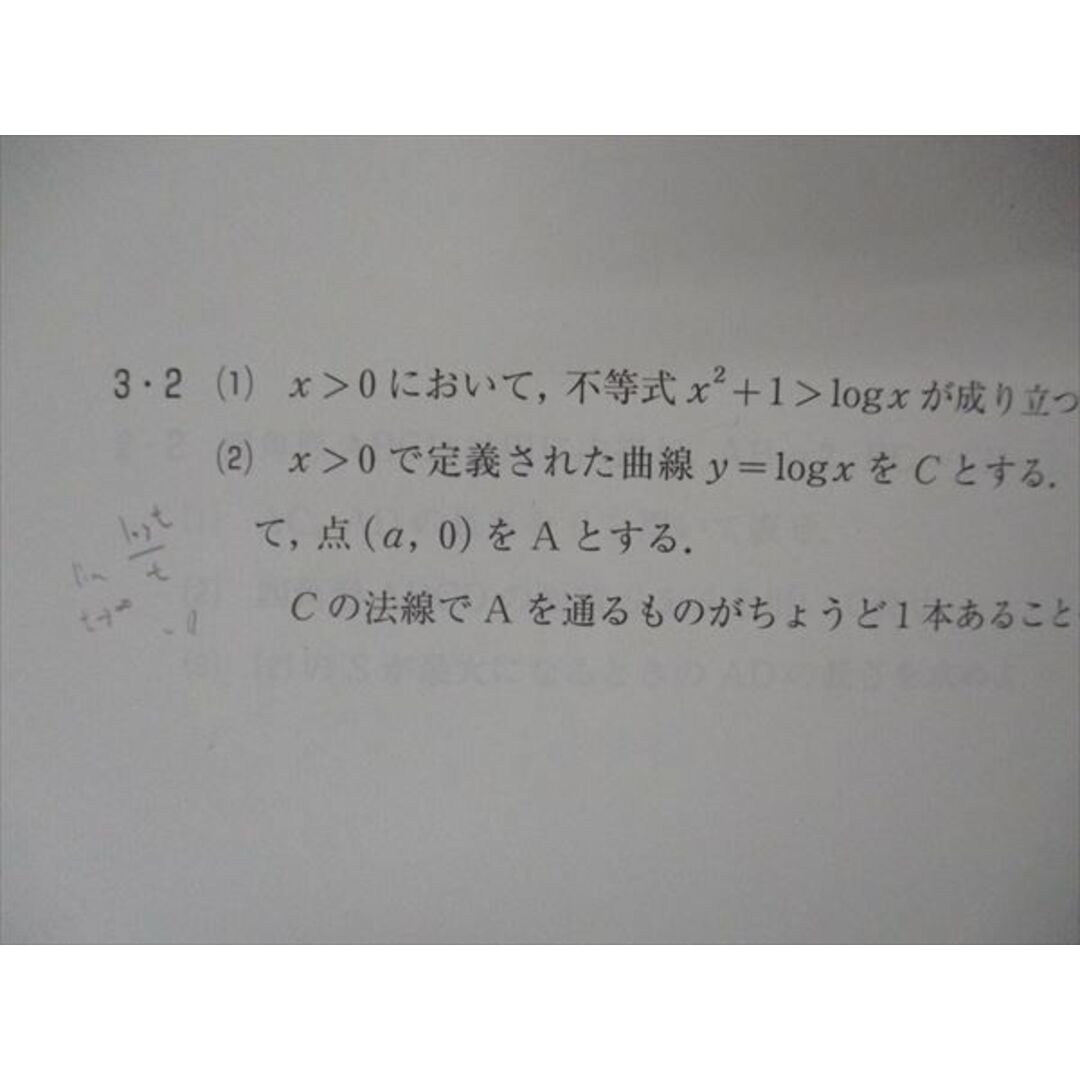 3・2 (1) x>0 において, 不等式 x²+1>log x が成り立つ
(2) x>0 で定義された曲線 y=log x を C とする.
て, 点 (a, 0) を A とする.
C の法線で A を通るものがちょうど1本あること
log t
lim t
t→∞